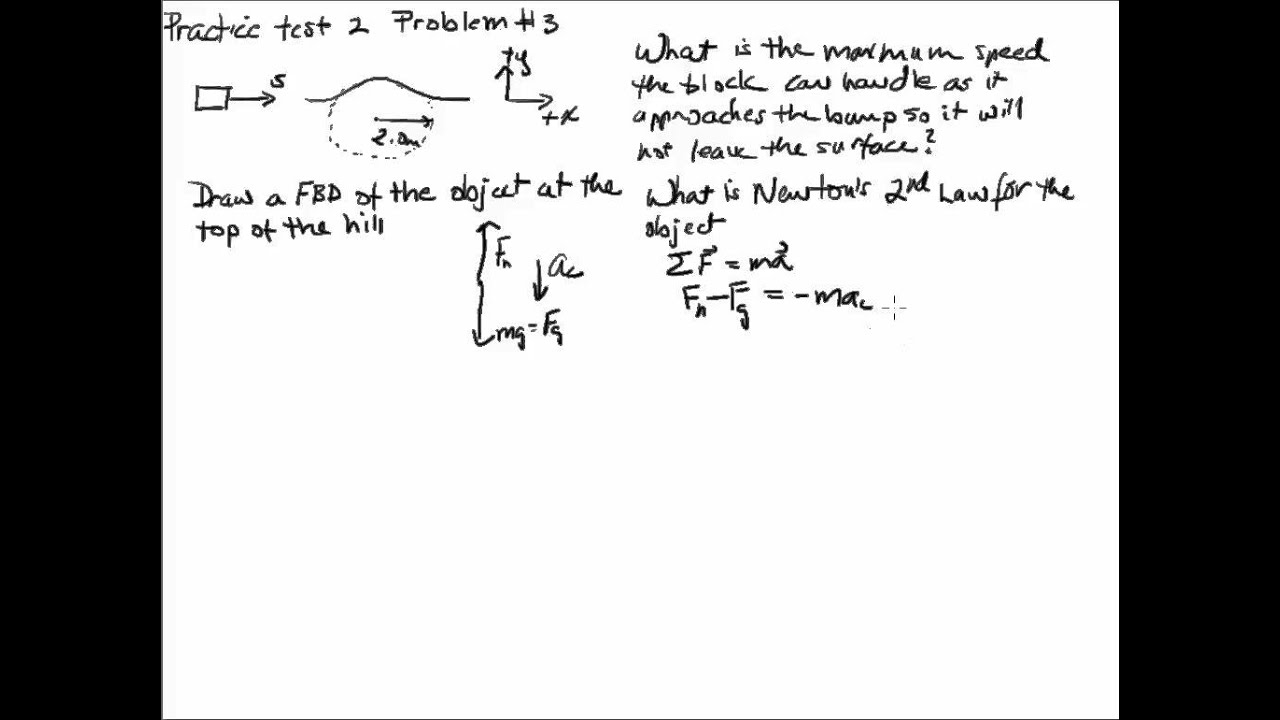 Practice test 2 Problem #3
S
+y
+x
2.0m
What is the maximum speed
the block can handle as it
approaches the bump so it will
not leave the surface?
Draw a FBD of the object at the
top of the hill
Fn
ac
mg = Fg
What is Newton's 2nd Law for the
object
ΣF⃗ = ma⃗
Fn - Fg = -mac